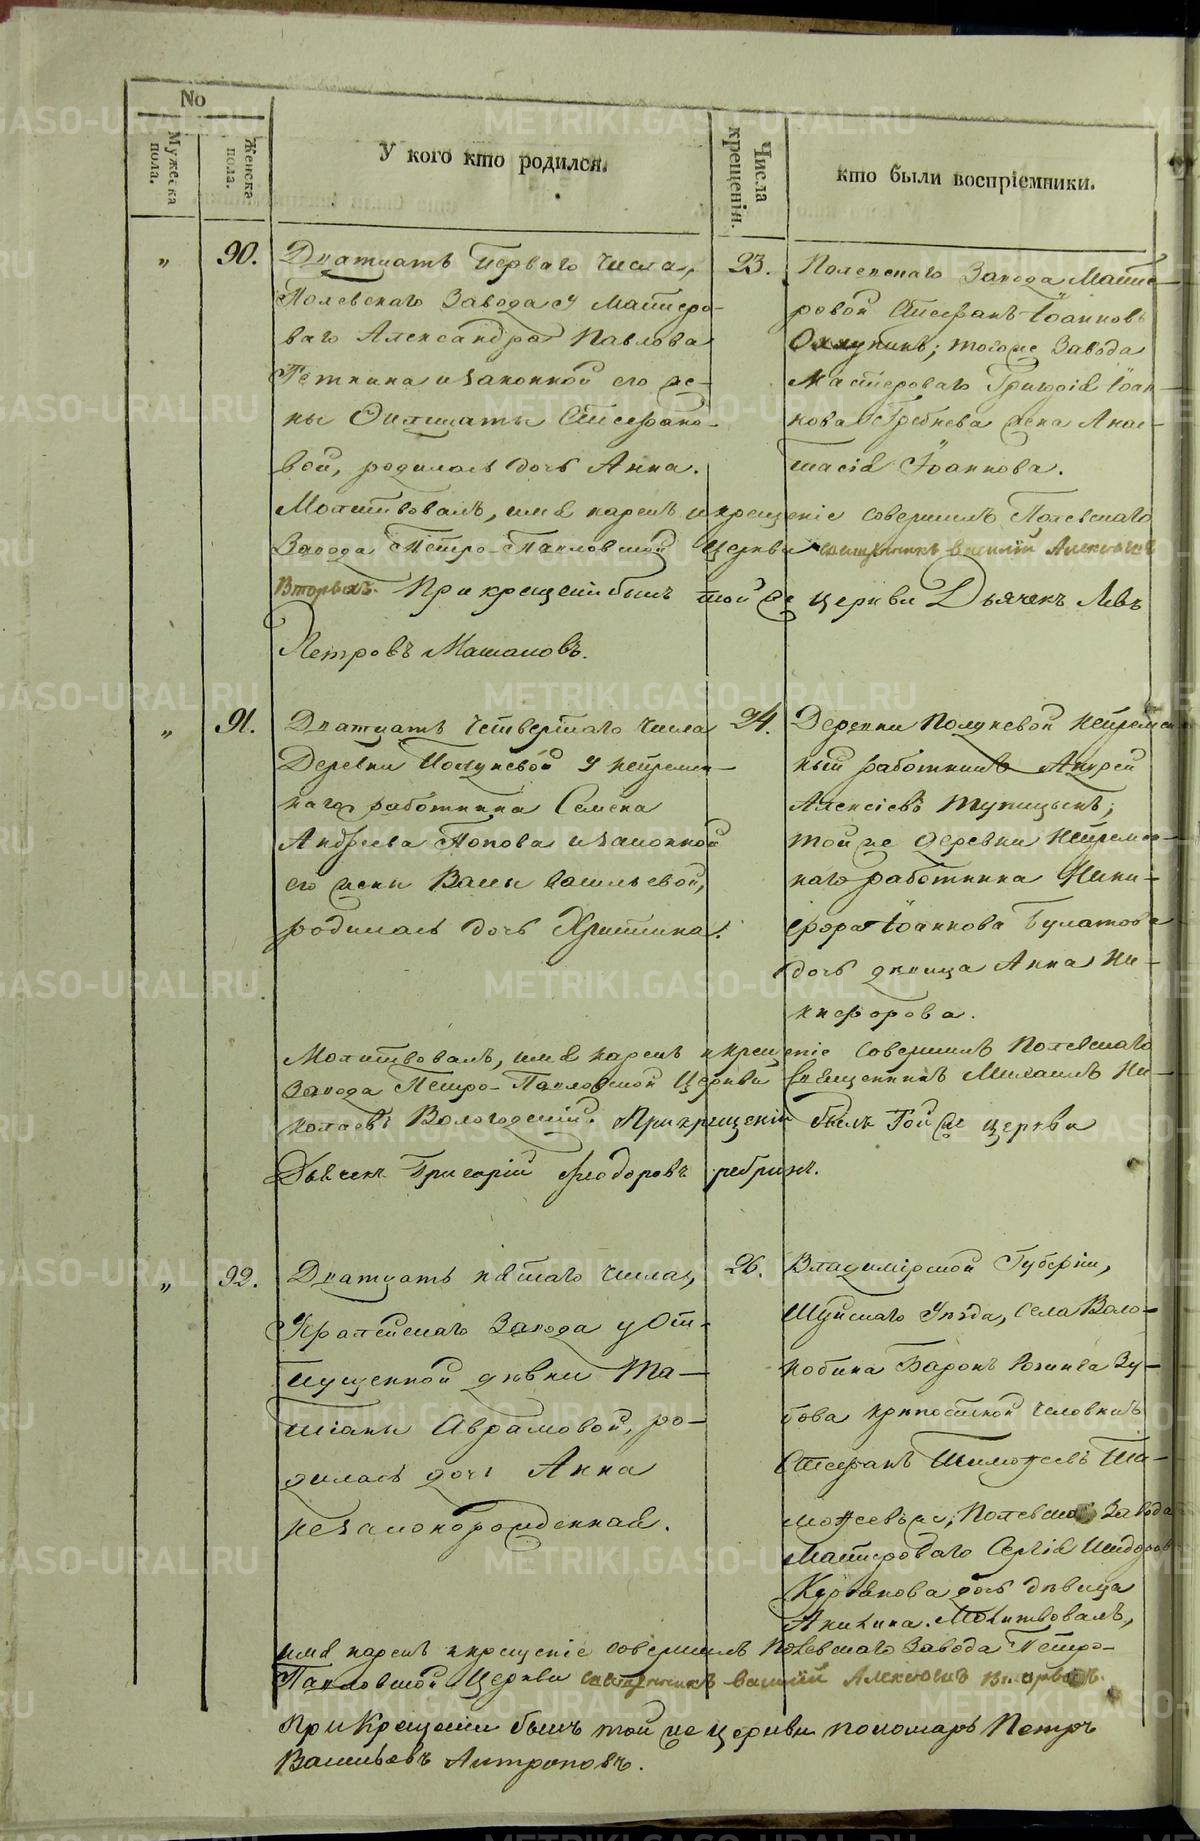 No
Мужеска пола.
Женска пола.
У кого кто родился.
Числа крещенія.
кто были воспріемники.
"
90.
Дватцать перваго числа,
Полевскаго Завода у Мастеро-
ваго Александра Павлова
и законной его же-
ны Стефано-
вой, родилась дочь Анна.
23.
Полевскаго Завода Масте-
ровой Стефанъ Іоанновъ
тогоже Завода
Мастероваго Григорія Іоан-
нова Гребнева жена Анас-
тасія Іоаннова.
Молитвовалъ, имя нарекъ и крещеніе совершилъ Полевскаго
Завода Петро-Павловской Церкви священникъ Василій Алексѣевъ
Вторыхъ. При крещеніи былъ той же церкви Дьячекъ Левъ
Петровъ Машановъ.
"
91.
Дватцать четвертаго числа
Деревни Полдневой у непремен-
наго работника Семена
Андреева Попова и законной
его жены Васильевой,
родилась дочь Христина.
24.
Деревни Полдневой непремен-
ный работникъ Андрей
Алексѣевъ Тупицынъ;
тойже деревни непремен-
наго работника Ники-
фора Іоаннова Булатова
дочь девица Анна Ни-
кифорова.
Молитвовалъ, имя нарекъ и крещеніе совершилъ Полевскаго
Завода Петро-Павловской Церкви Священникъ Михаилъ Ни-
колаевъ Вологодскій. При крещеніи былъ Той же церкви
Дьячекъ Григорій Феодоровъ Ребринъ.
"
92.
Дватцать пятаго числа,
Завода у От-
пущенной дѣвки Та-
тіаны Аврамовой, ро-
дилась дочь Анна
незаконорожденная.
26.
Владимірской Губерніи,
Шуйскаго Уѣзда, Села Воло-
кобина Баронъ Зу-
бова крѣпостной человекъ
Стефанъ Тимофеевъ Ти-
мофеевъ же; Полевскаго Завода
Мастероваго Сергія Исидорова
Курбанова дочь дѣвица
Молитвовалъ,
имя нарекъ и крещеніе совершилъ Полевскаго Завода Петро-
Павловской Церкви священникъ Василій Алексѣевъ Вторыхъ.
При Крещеніи былъ той же церкви пономарь Петръ
Васильевъ Антроповъ.